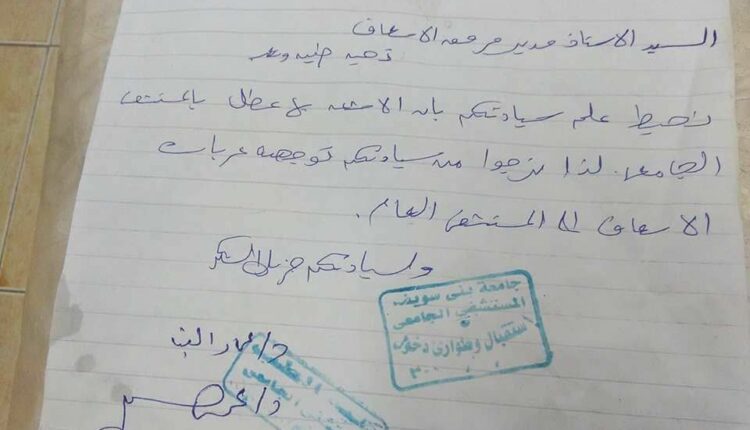 السيد الاستاذ مدير مرفق الاسعاف
تحيه طيبه وبعد
نحيط علم سيادتكم بان الاشعه بها عطل بالمستشفى
الجامعى. لذا نرجوا من سيادتكم توجيه عربات
الاسعاف الى المستشفى العام.
ولسيادتكم جزيل الشكر
جامعة بنى سويف
المستشفى الجامعى
استقبال وطوارئ
د/عمار
د/عمر